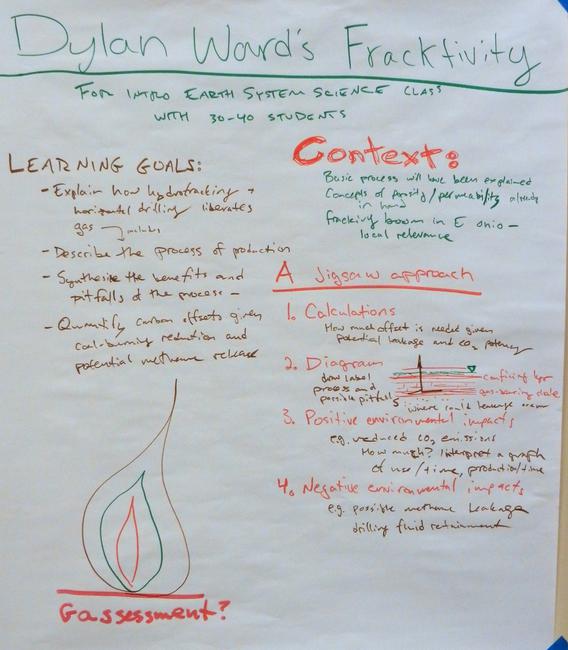 Dylan Ward's Fracktivity
FOR INTRO EARTH SYSTEM SCIENCE CLASS
WITH 30-40 STUDENTS
LEARNING GOALS:
- Explain how hydrofracking +
horizontal drilling liberates
gas
- Describe the process of production
- Synthesize the benefits and
pitfalls of the process -
- Quantify carbon offsets given
coal-burning reduction and
potential methane release
Gassessment?
Context:
Basic process will have been explained
Concepts of porosity/permeability already
in hand
Fracking boom in E Ohio -
local relevance
A Jigsaw approach
1. Calculations
How much offset is needed given
potential leakage and CO2 potency
2. Diagram
draw label
process and
possible pitfalls
confining layer
gas-bearing shale
where could leakage occur
3. Positive environmental impacts
e.g. reduced CO2 emissions
How much? Interpret a graph
of use/time, production/time
4. Negative environmental impacts
e.g. possible methane leakage
drilling fluid retainment